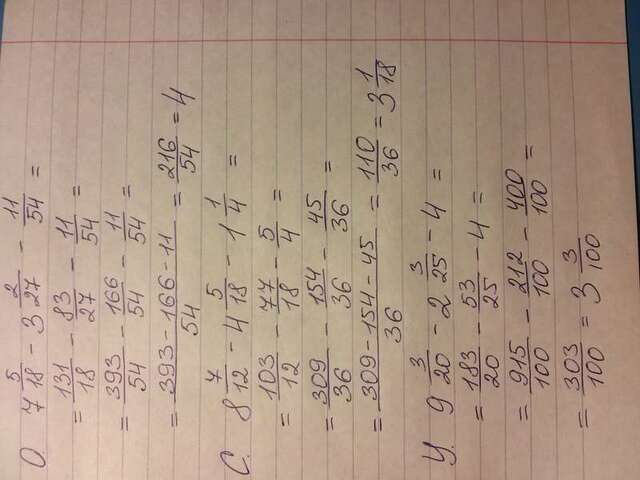 О. 7 5/18 - 3 2/27 - 11/54 =
= 131/18 - 83/27 - 11/54 =
= 393/54 - 166/54 - 11/54 =
= 393 - 166 - 11/54 = 216/54 = 4
С. 8 7/12 - 4 5/18 - 1 1/4 =
= 103/12 - 77/18 - 5/4 =
= 309/36 - 154/36 - 45/36 =
= 309 - 154 - 45/36 = 110/36 = 3 1/18
У. 9 3/20 - 2 3/25 - 4 =
= 183/20 - 53/25 - 4 =
= 915/100 - 212/100 - 400/100 =
= 303/100 = 3 3/100